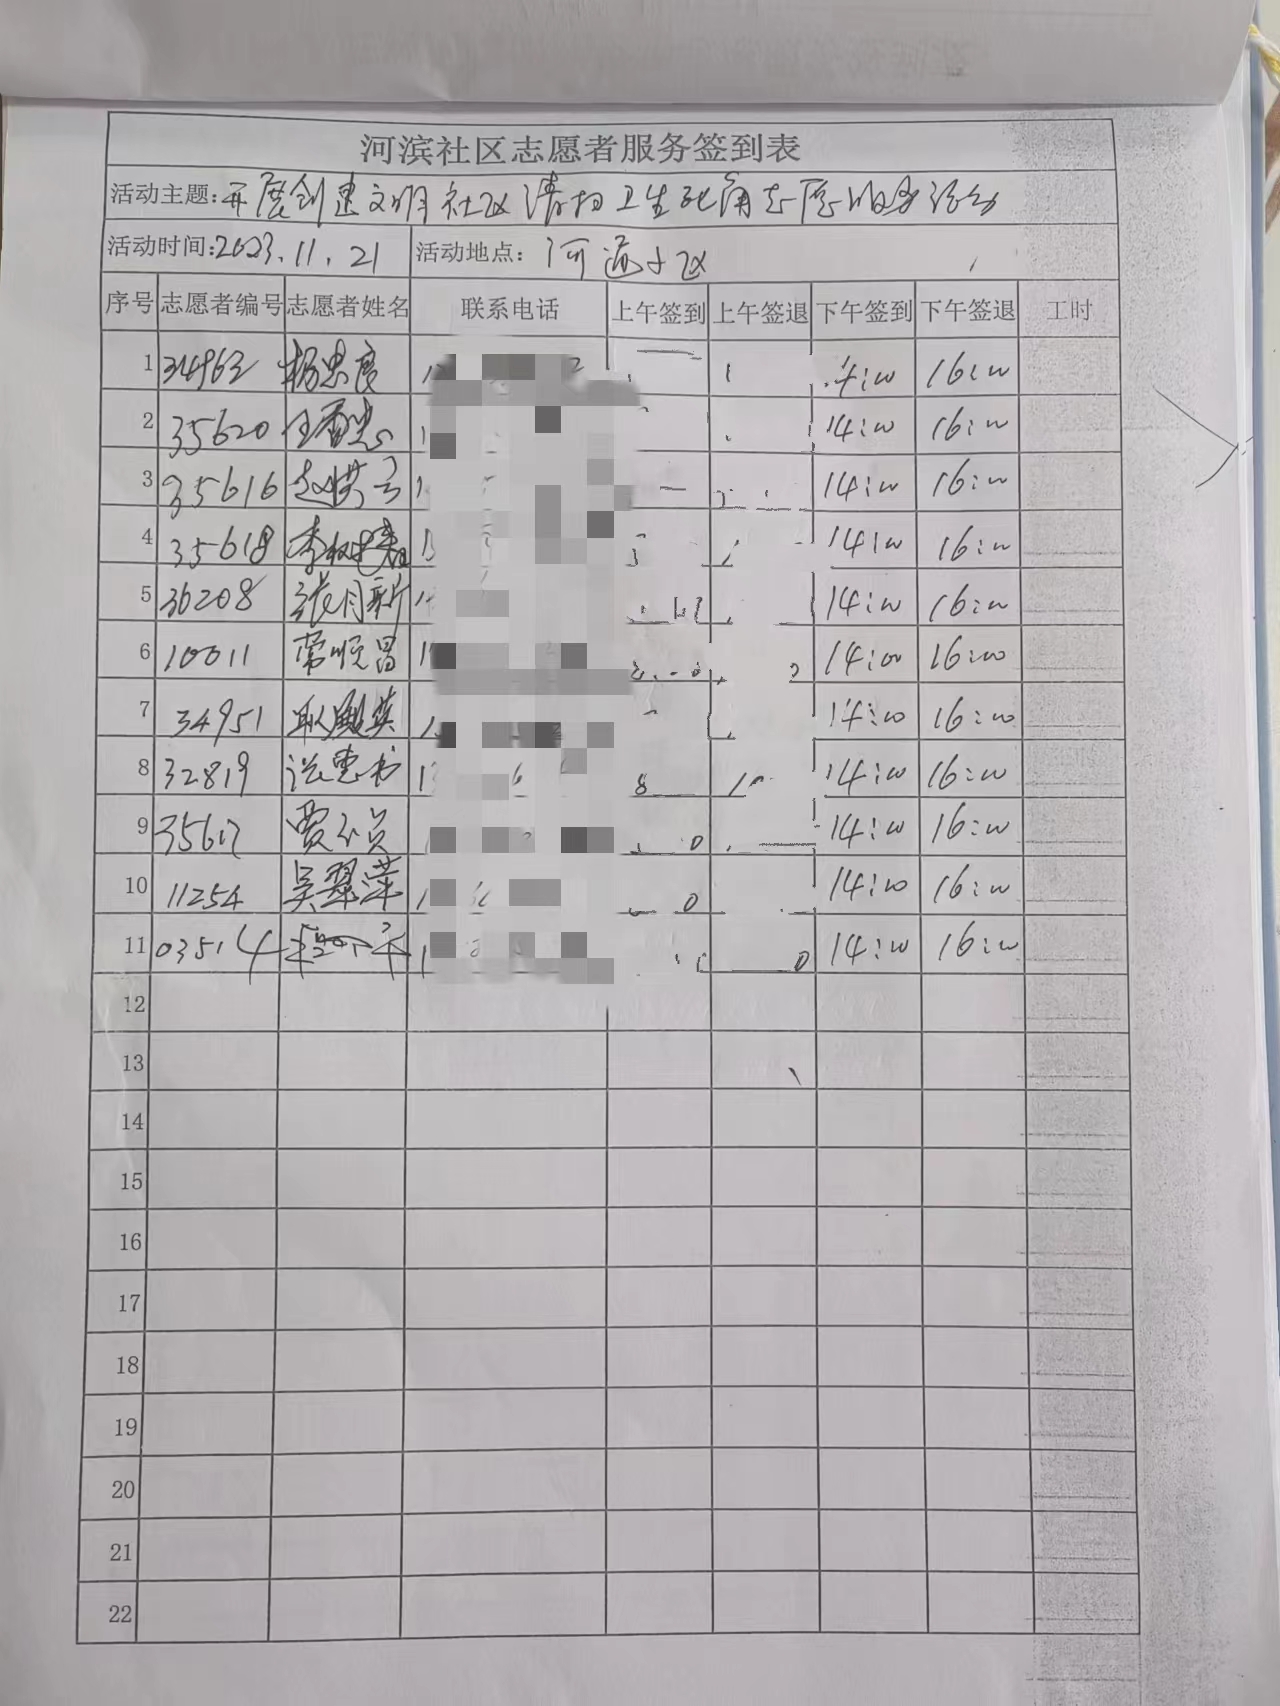 河滨社区志愿者服务签到表
活动主题: 开展创建文明社区清扫卫生死角志愿服务活动
活动时间: 2023.11.21 活动地点: 河道小区
序号 志愿者编号 志愿者姓名 联系电话 上午签到 上午签退 下午签到 下午签退 工时
1 34963 杨忠良 14:00 16:00
2 35620 14:00 16:00
3 35616 14:00 16:00
4 35618 14:00 16:00
5 36208 张月新 14:00 16:00
6 10011 常顺昌 14:00 16:00
7 34951 14:00 16:00
8 32819 14:00 16:00
9 35617 14:00 16:00
10 11254 吴翠萍 14:00 16:00
11 03514 14:00 16:00
12
13
14
15
16
17
18
19
20
21
22